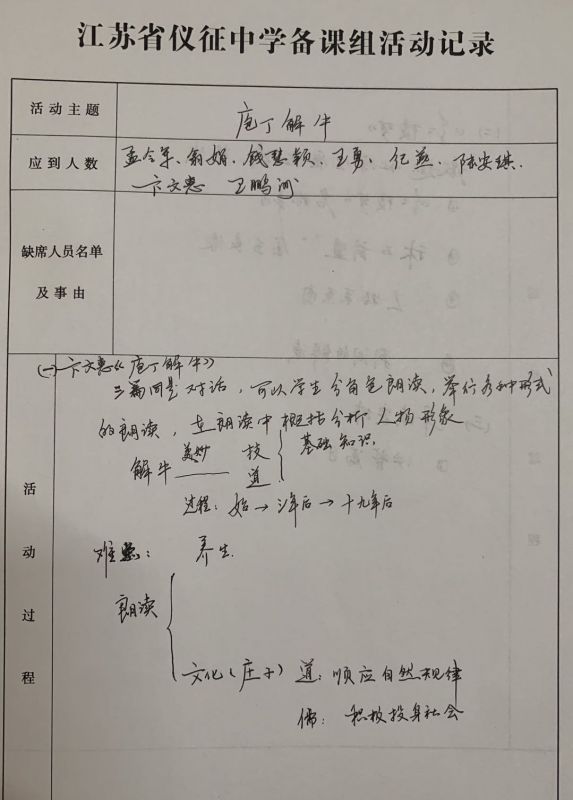 江苏省仪征中学备课组活动记录
活动主题
庖丁解牛
应到人数
孟令军、翁娟、钱慧颖、王勇、纪燕、陈安琪、
卞文惠 王鹏河
缺席人员名单
及事由
活动过程
(一)卞文惠《庖丁解牛》
三篇同是对话，可以学生分角色朗读，举行各种形式
的朗读，在朗读中概括分析人物形象
解牛 美妙 技 道 基础知识.
过程：始→3年后→十九年后
难点： 养生.
朗读
文化(庄子) 道：顺应自然规律
儒：积极投身社会